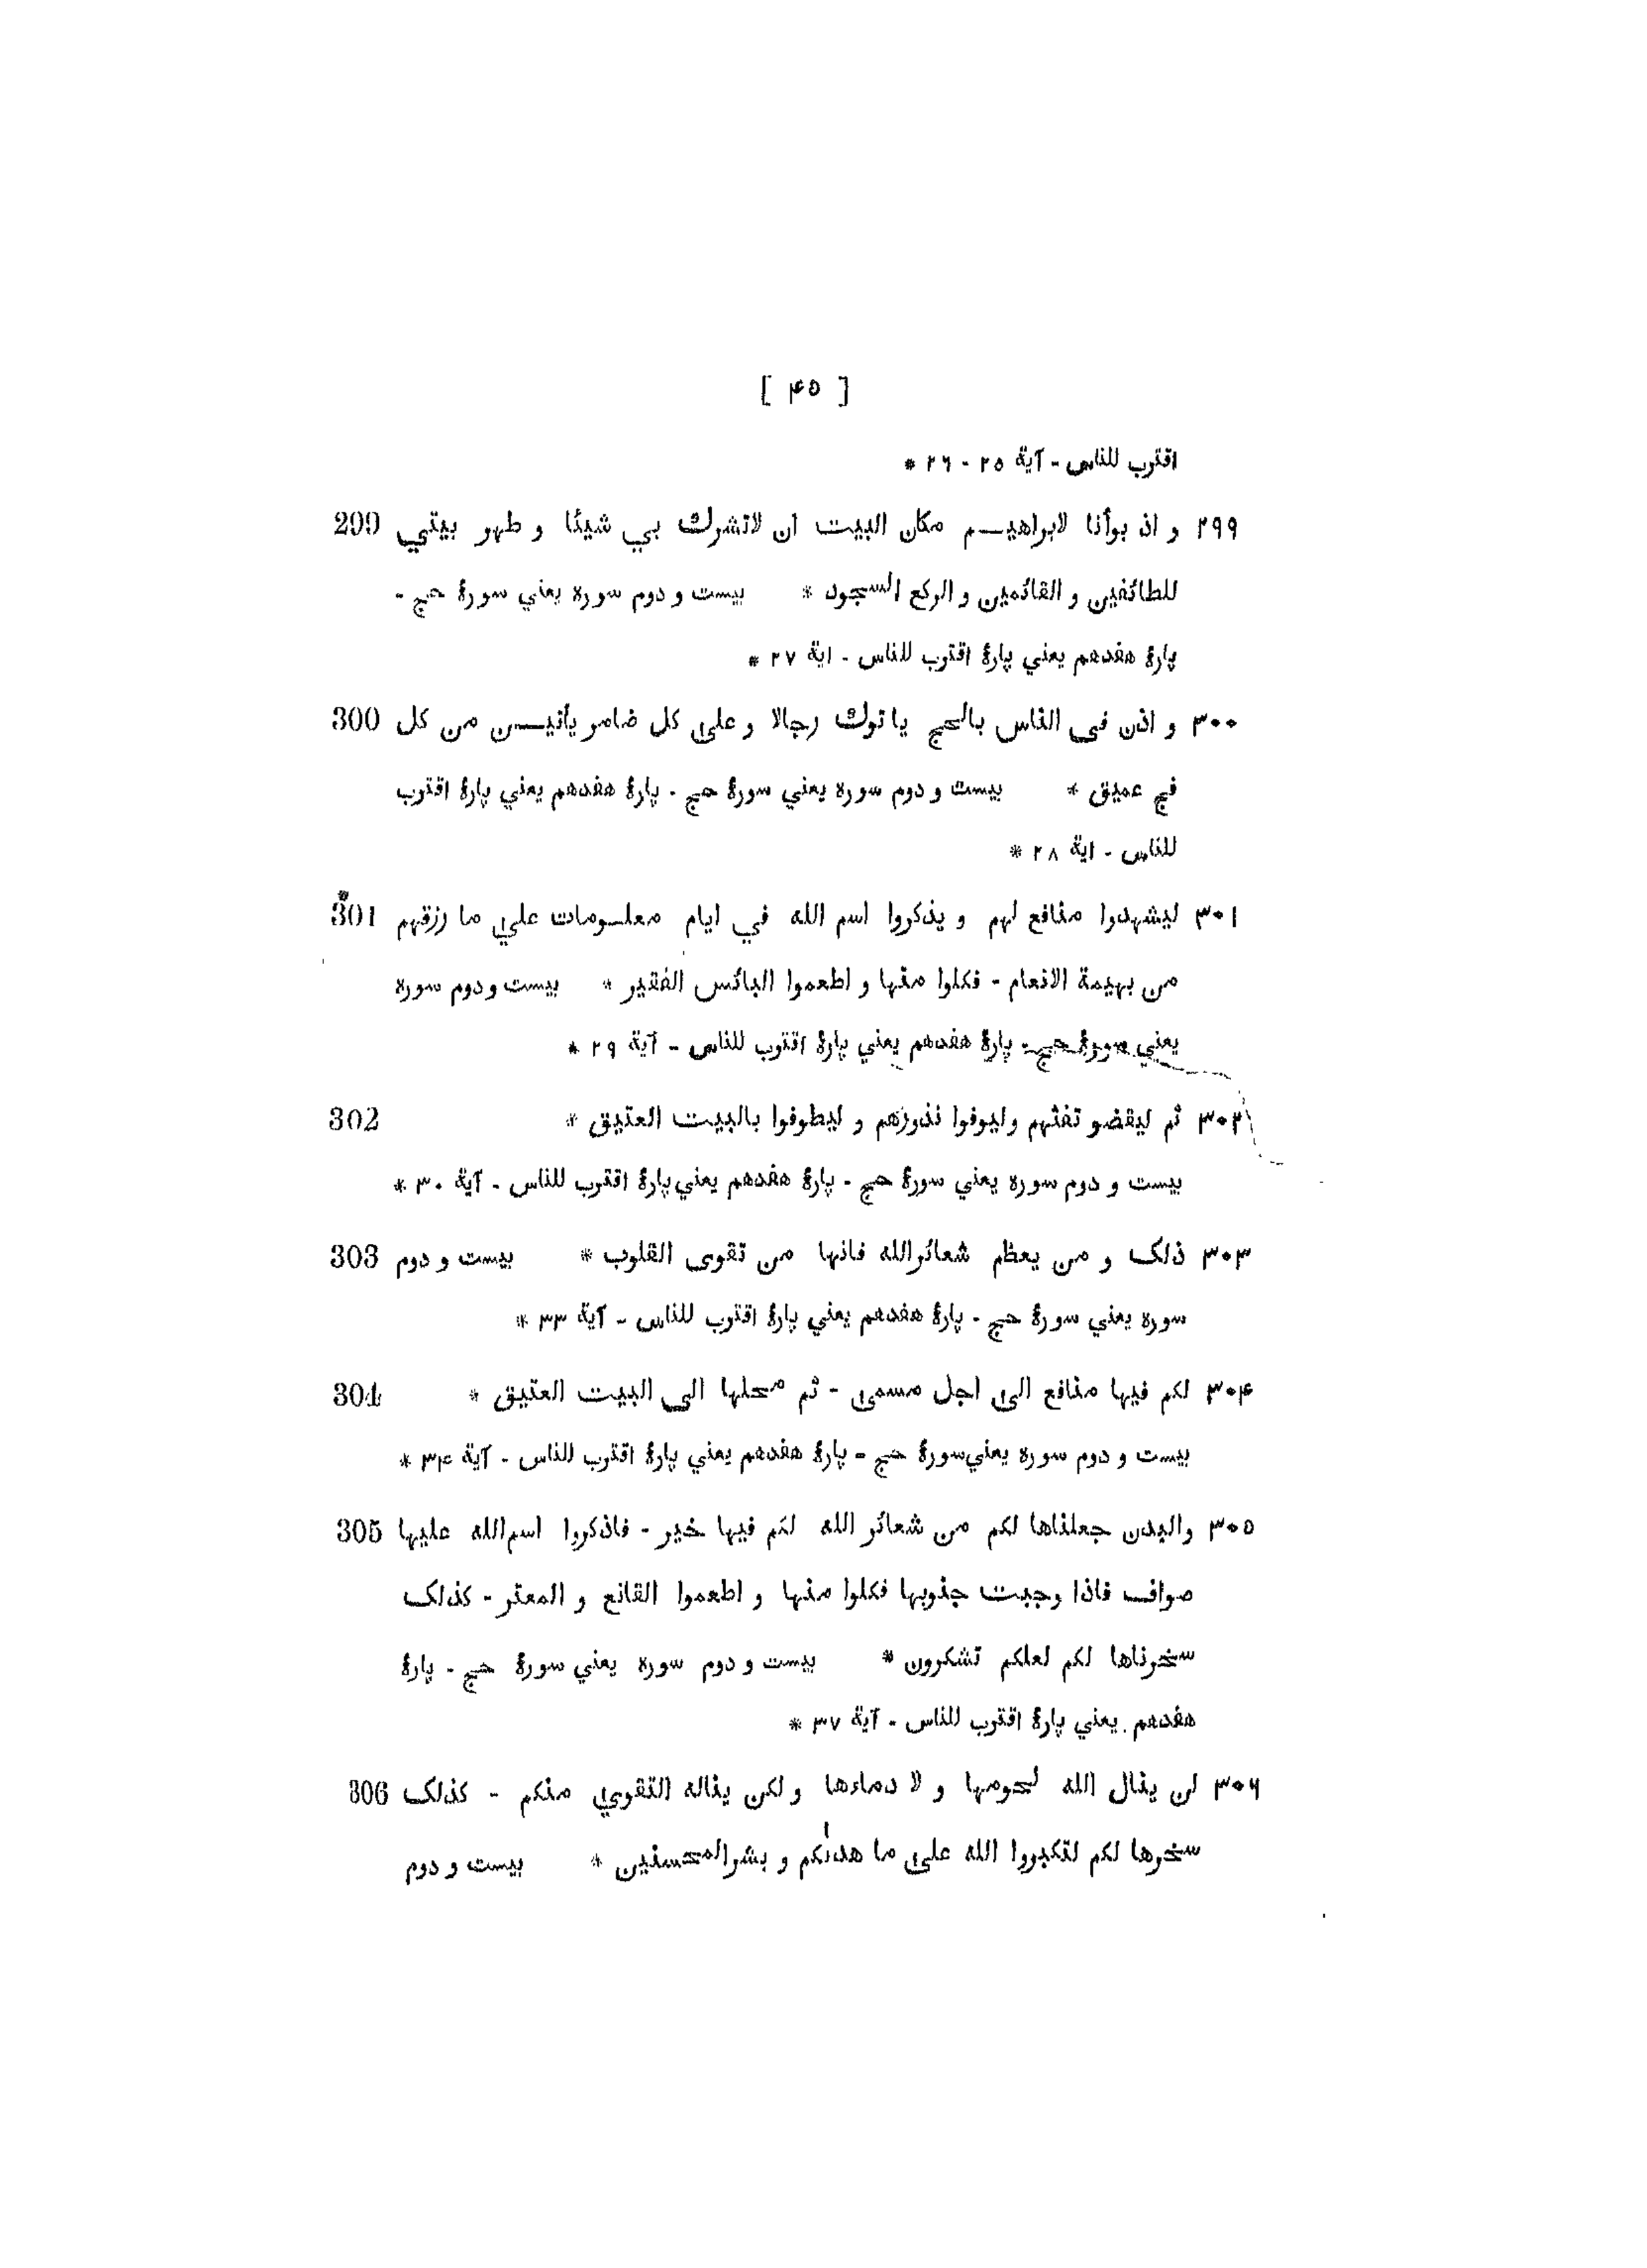 [ ۴۵ ]
اقترب للناس - آیة ۲۵ - ۲۶ *
۲۹۹ و اذ بوأنا لابراهيـــم مكان البيت ان لاتشرك بي شيئا و طهر بيتي 299
للطائفين و القائمين و الركع السجود * بيست و دوم سوره يعني سورهٔ حج -
پارهٔ هفدهم يعني پارهٔ اقترب للناس - اية ۲۷ *
۳۰۰ و اذن فى الناس بالحج ياتوك رجالا و على كل ضامر يأتيـــن من كل 300
فج عميق * بيست و دوم سوره يعني سورهٔ حج - پارهٔ هفدهم يعني پارهٔ اقترب
للناس - اية ۲۸ *
۳۰۱ ليشهدوا منافع لهم و يذكروا اسم الله في ايام معلـومات علي ما رزقهم 301
من بهيمة الانعام - فكلوا منها و اطعموا البائس الفقير * بيست و دوم سوره
يعني سورهٔ حج - پارهٔ هفدهم يعني پارهٔ اقترب للناس - آية ۲۹ *
۳۰۲ ثم ليقضو تفثهم وليوفوا نذورهم و ليطوفوا بالبيت العتيق * 302
بيست و دوم سوره يعني سورهٔ حج - پارهٔ هفدهم يعني پارهٔ اقترب للناس - آية ۳۰ *
۳۰۳ ذلک و من يعظم شعائرالله فانها من تقوى القلوب * بيست و دوم 303
سوره يعني سورهٔ حج - پارهٔ هفدهم يعني پارهٔ اقترب للناس - آية ۳۳ *
۳۰۴ لكم فيها منافع الى اجل مسمى - ثم محلها الى البيت العتيق * 304
بيست و دوم سوره يعني سورهٔ حج - پارهٔ هفدهم يعني پارهٔ اقترب للناس - آية ۳۴ *
۳۰۵ والبدن جعلناها لكم من شعائر الله لكم فيها خير - فاذكروا اسم الله عليها 305
صواف فاذا وجبت جنوبها فكلوا منها و اطعموا القانع و المعتر - كذلک
سخرناها لكم لعلكم تشكرون * بيست و دوم سوره يعني سورهٔ حج - پارهٔ
هفدهم يعني پارهٔ اقترب للناس - آية ۳۷ *
۳۰۶ لن ينال الله لحومها و لا دماءها و لكن يناله التقوي منكم - كذلک 306
سخرها لكم لتكبروا الله على ما هدىٰكم و بشرالمحسنين * بيست و دوم